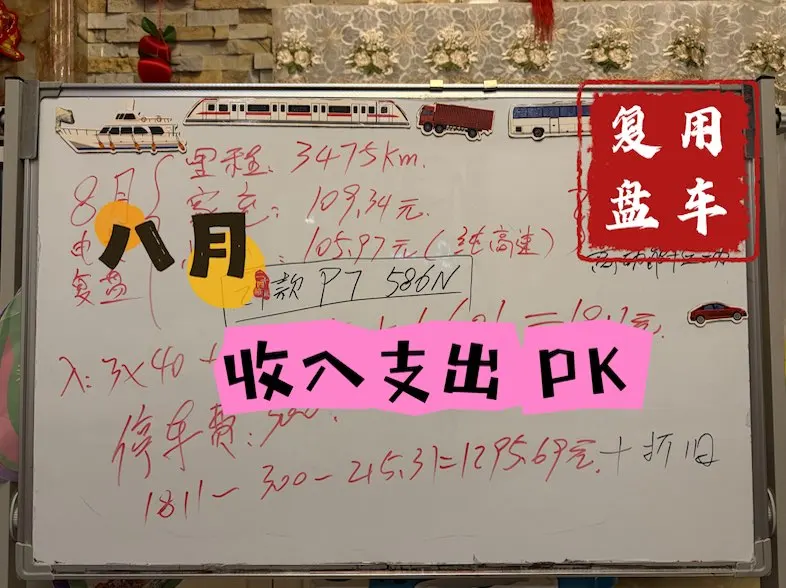 复用
盘车
8月
电
复盘
里程: 3475km.
家充: 109.34元.
105.97元(纯高速)
八月
款 P7 586N
入: 3×40 +
收入支出 PK
停车费: 300.
1811-300-215.31=1295.69元.+折旧